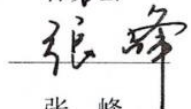 张峰
张 峰